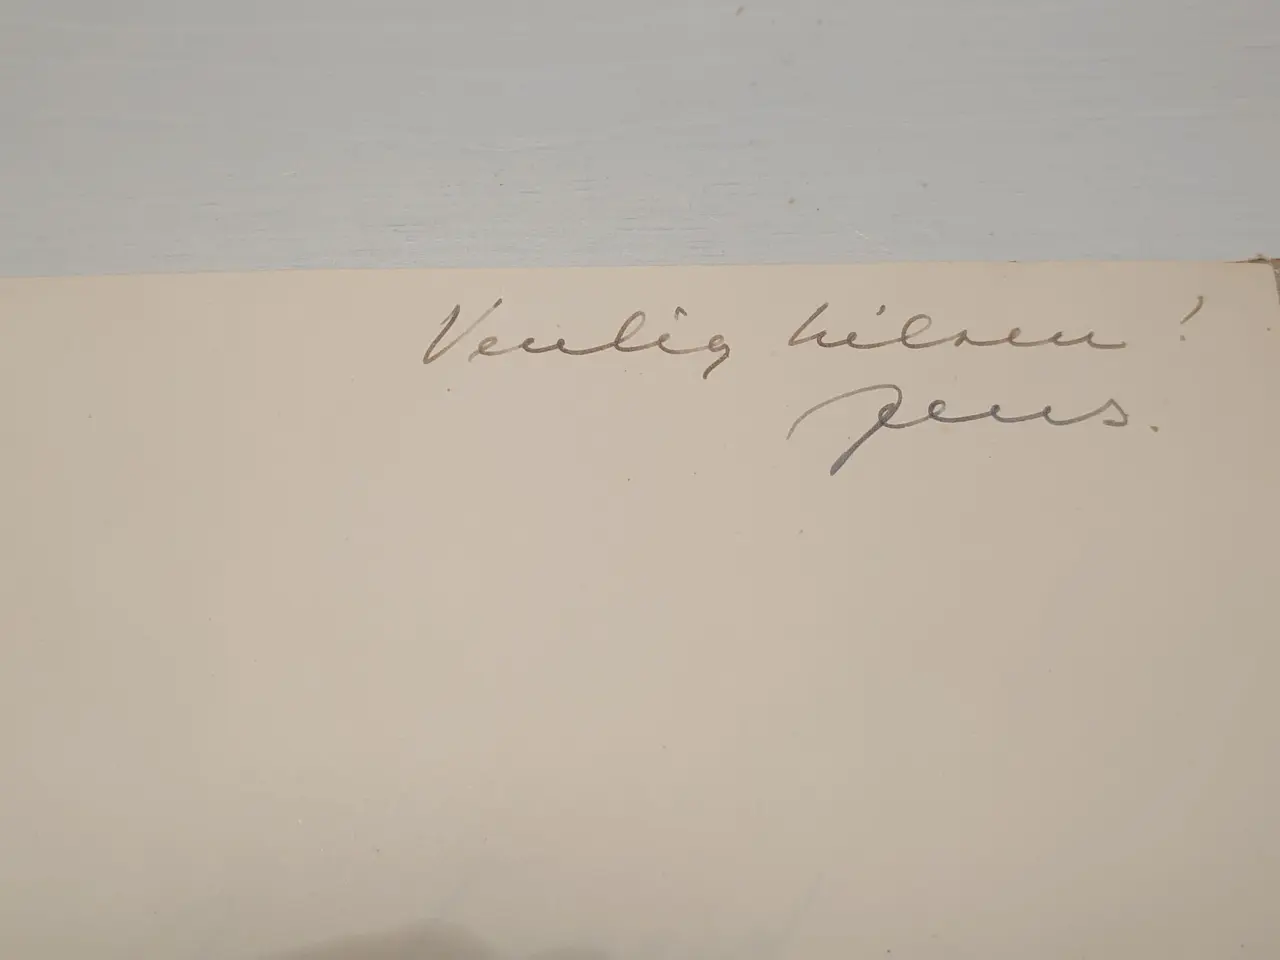 Venlig hilsen!
Jens.